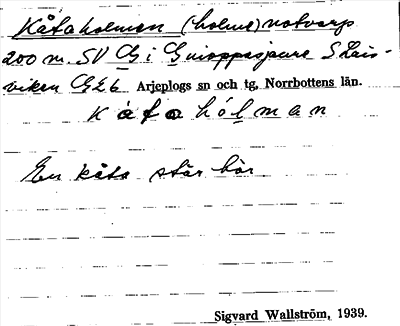 Kåtaholmen (holme) notvarp
200 m. SV G i Guioppesjaure S Lais-
viken G2Eb Arjeplogs sn och tg, Norrbottens län.
kåtahólman
En kåta står här.
Sigvard Wallström, 1939.